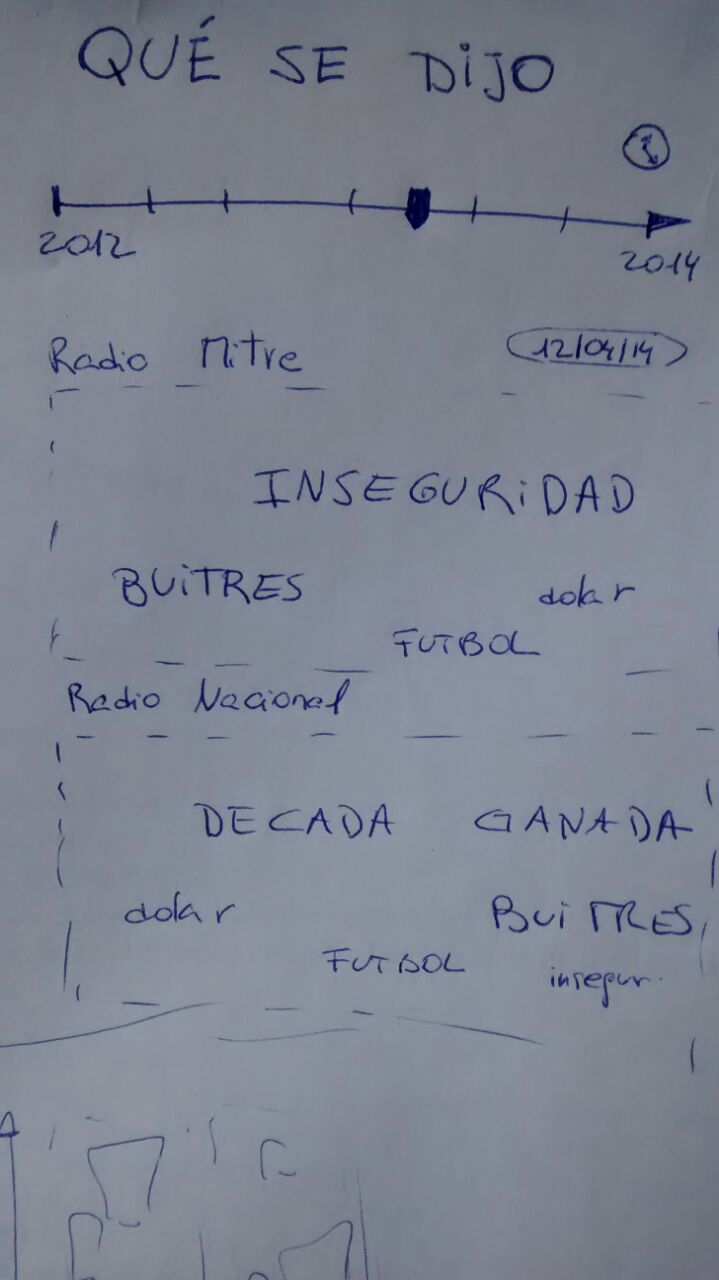 QUÉ SE DiJO
2012
2014
Radio Mitre
12/04/14
INSEGURiDAD
BUiTRES
dolar
FUTBOL
Radio Nacional
DECADA GANADA
dolar
BUiTRES
FUTBOL
insegur.